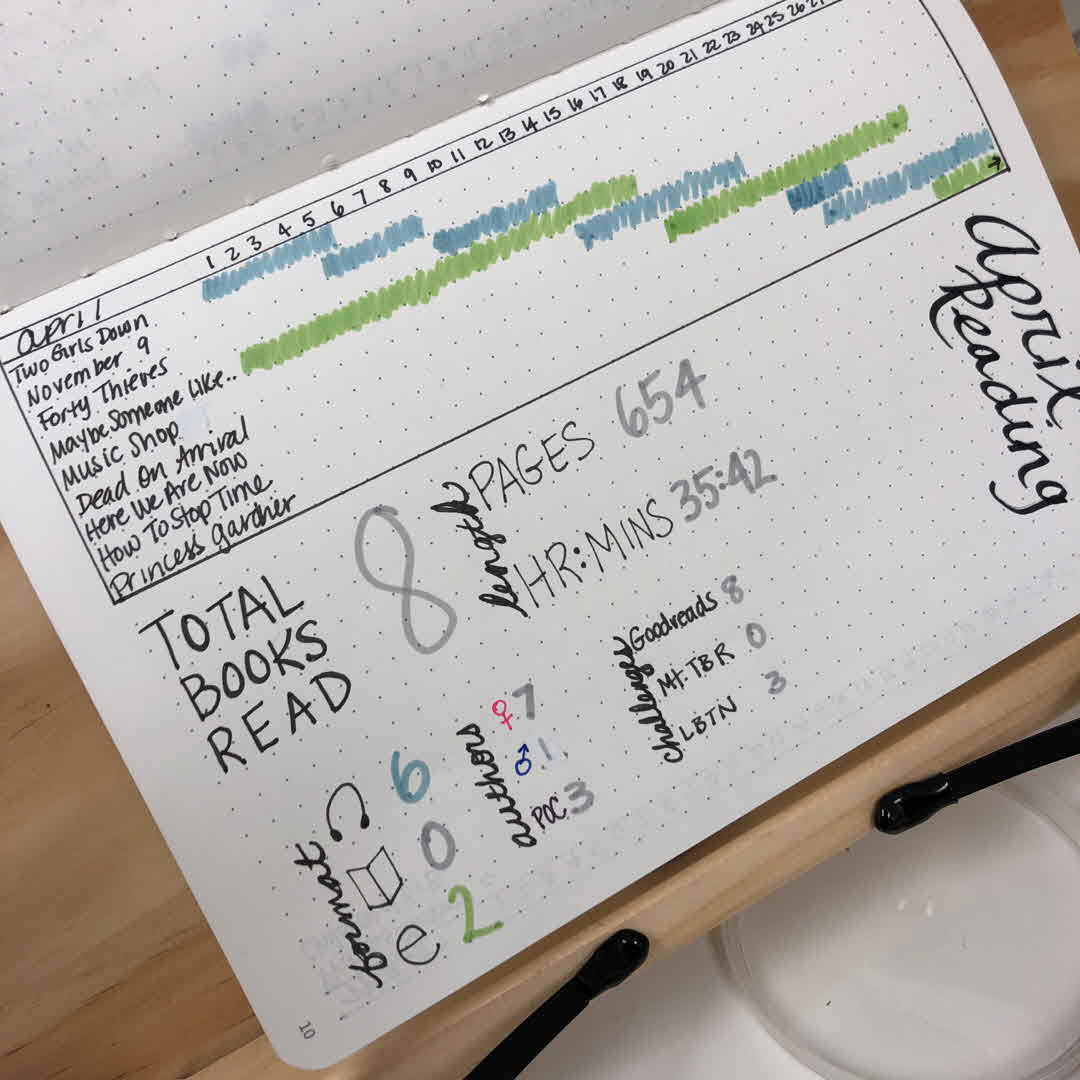 april 1 2 3 4 5 6 7 8 9 10 11 12 13 14 15 16 17 18 19 20 21 22 23 24 25 26 27
Two Girls Down
November 9
Forty Thieves
Maybe Someone Like..
Music Shop
Dead On Arrival
Here We Are Now
How To Stop Time
Princess Gardner
april
Reading
TOTAL
BOOKS
READ
8
length
PAGES 654
HR:MINS 35:42
format
6
0
e 2
authors
♀ 7
♂ 1
POC 3
Challenges
Goodreads 8
Mt. TBR 0
LBTN 3
10